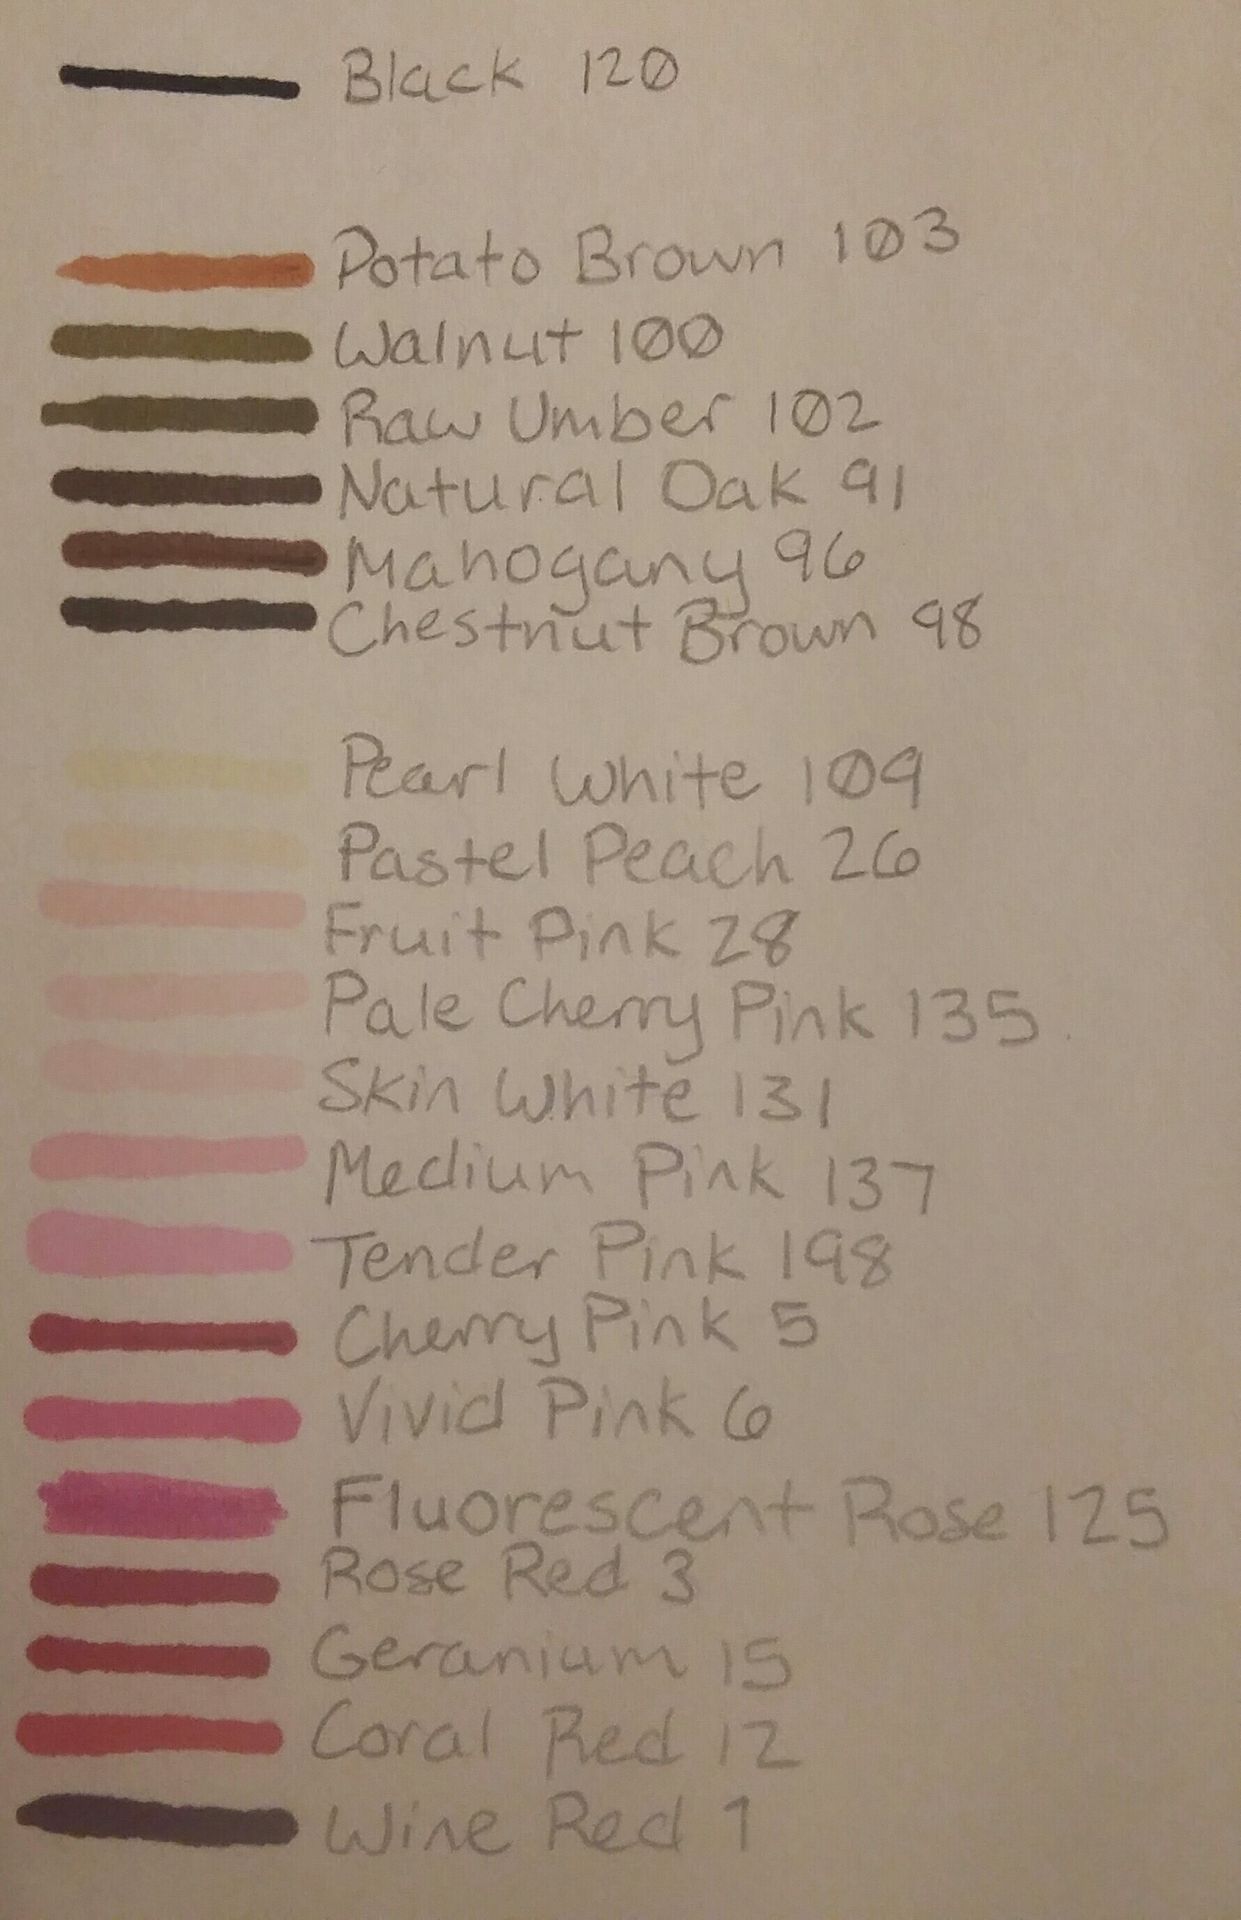 Black 120
Potato Brown 103
Walnut 100
Raw Umber 102
Natural Oak 91
Mahogany 96
Chestnut Brown 98
Pearl White 109
Pastel Peach 26
Fruit Pink 28
Pale Cherry Pink 135
Skin White 131
Medium Pink 137
Tender Pink 198
Cherry Pink 5
Vivid Pink 6
Fluorescent Rose 125
Rose Red 3
Geranium 15
Coral Red 12
Wine Red 1